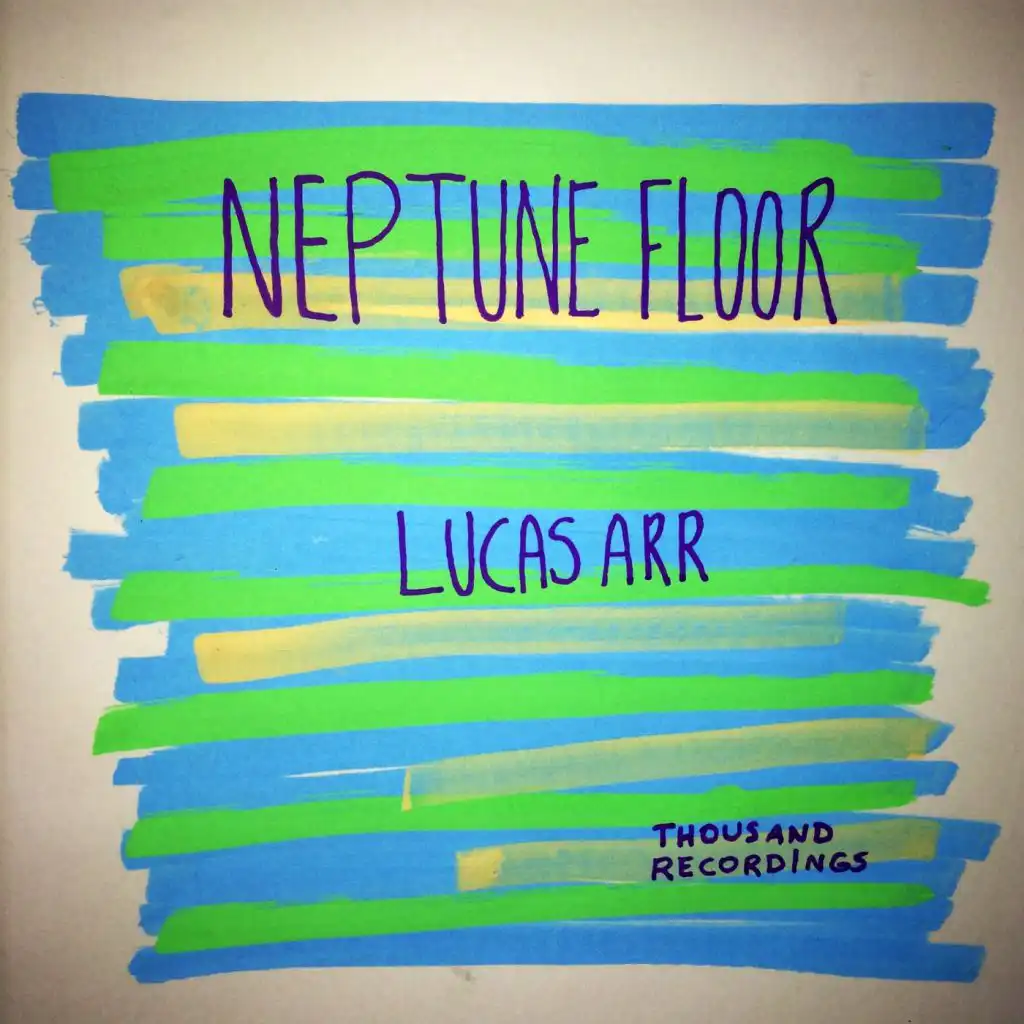 NEPTUNE FLOOR
LUCAS ARR
THOUSAND
RECORDINGS